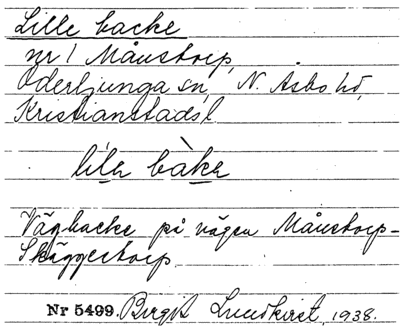 Lille backe
nr 1 Månstorp,
Oderljunga sn, N. Åsbo hd,
Kristianstads l
lìla bàka
Vägbacke på vägen Månstorp-
Skäggestorp.
Nr 5499. Birgit Lundkvist, 1938.